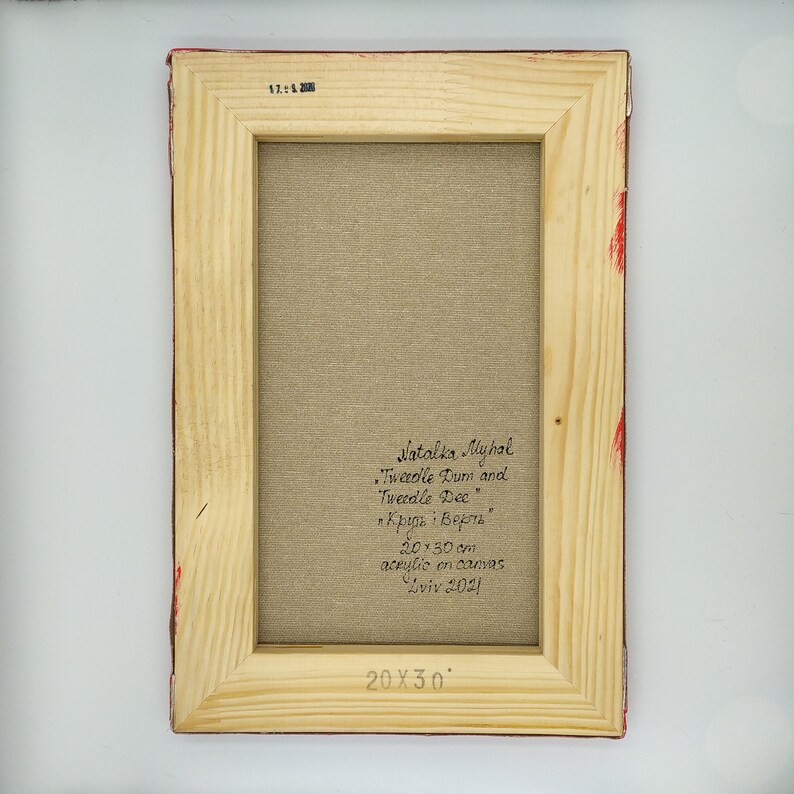 17.09.2020
Natalka Myhal
„Tweedle Dum and
Tweedle Dee"
„Круть і Верть"
20×30 cm
acrylic on canvas
Lviv 2021
20X30